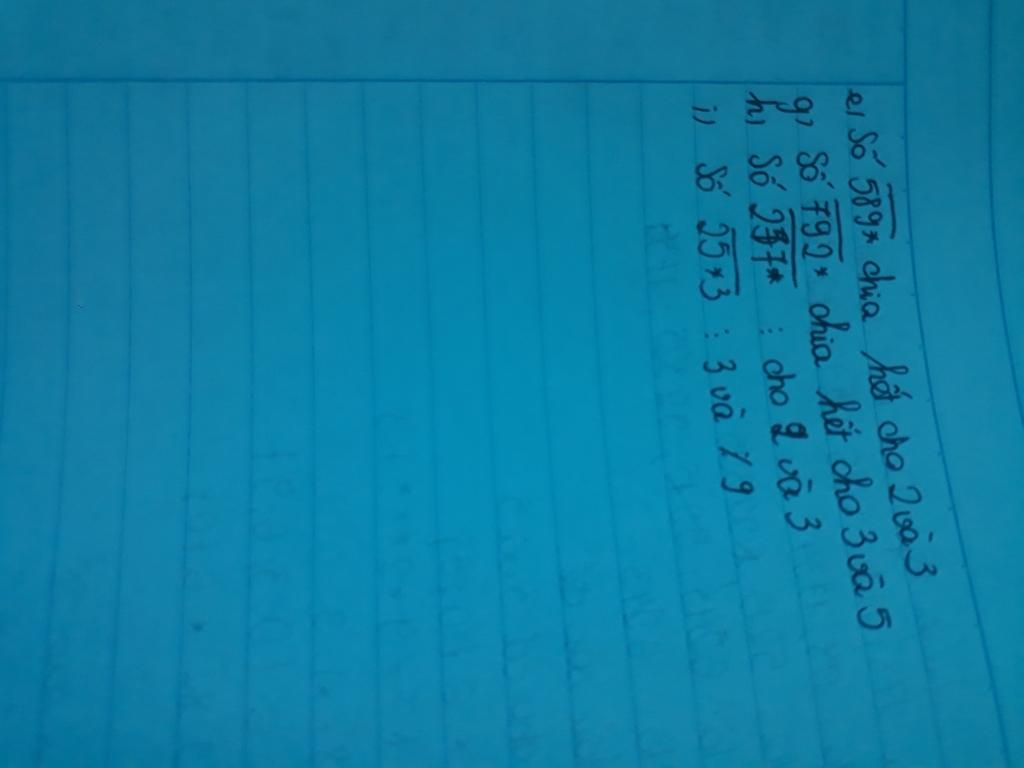 e, Số 589* chia hết cho 2 và 3
g, Số 792* chia hết cho 3 và 5
h, Số 277* : cho 2 và 3
i, Số 25*3 ⋮ 3 và 9